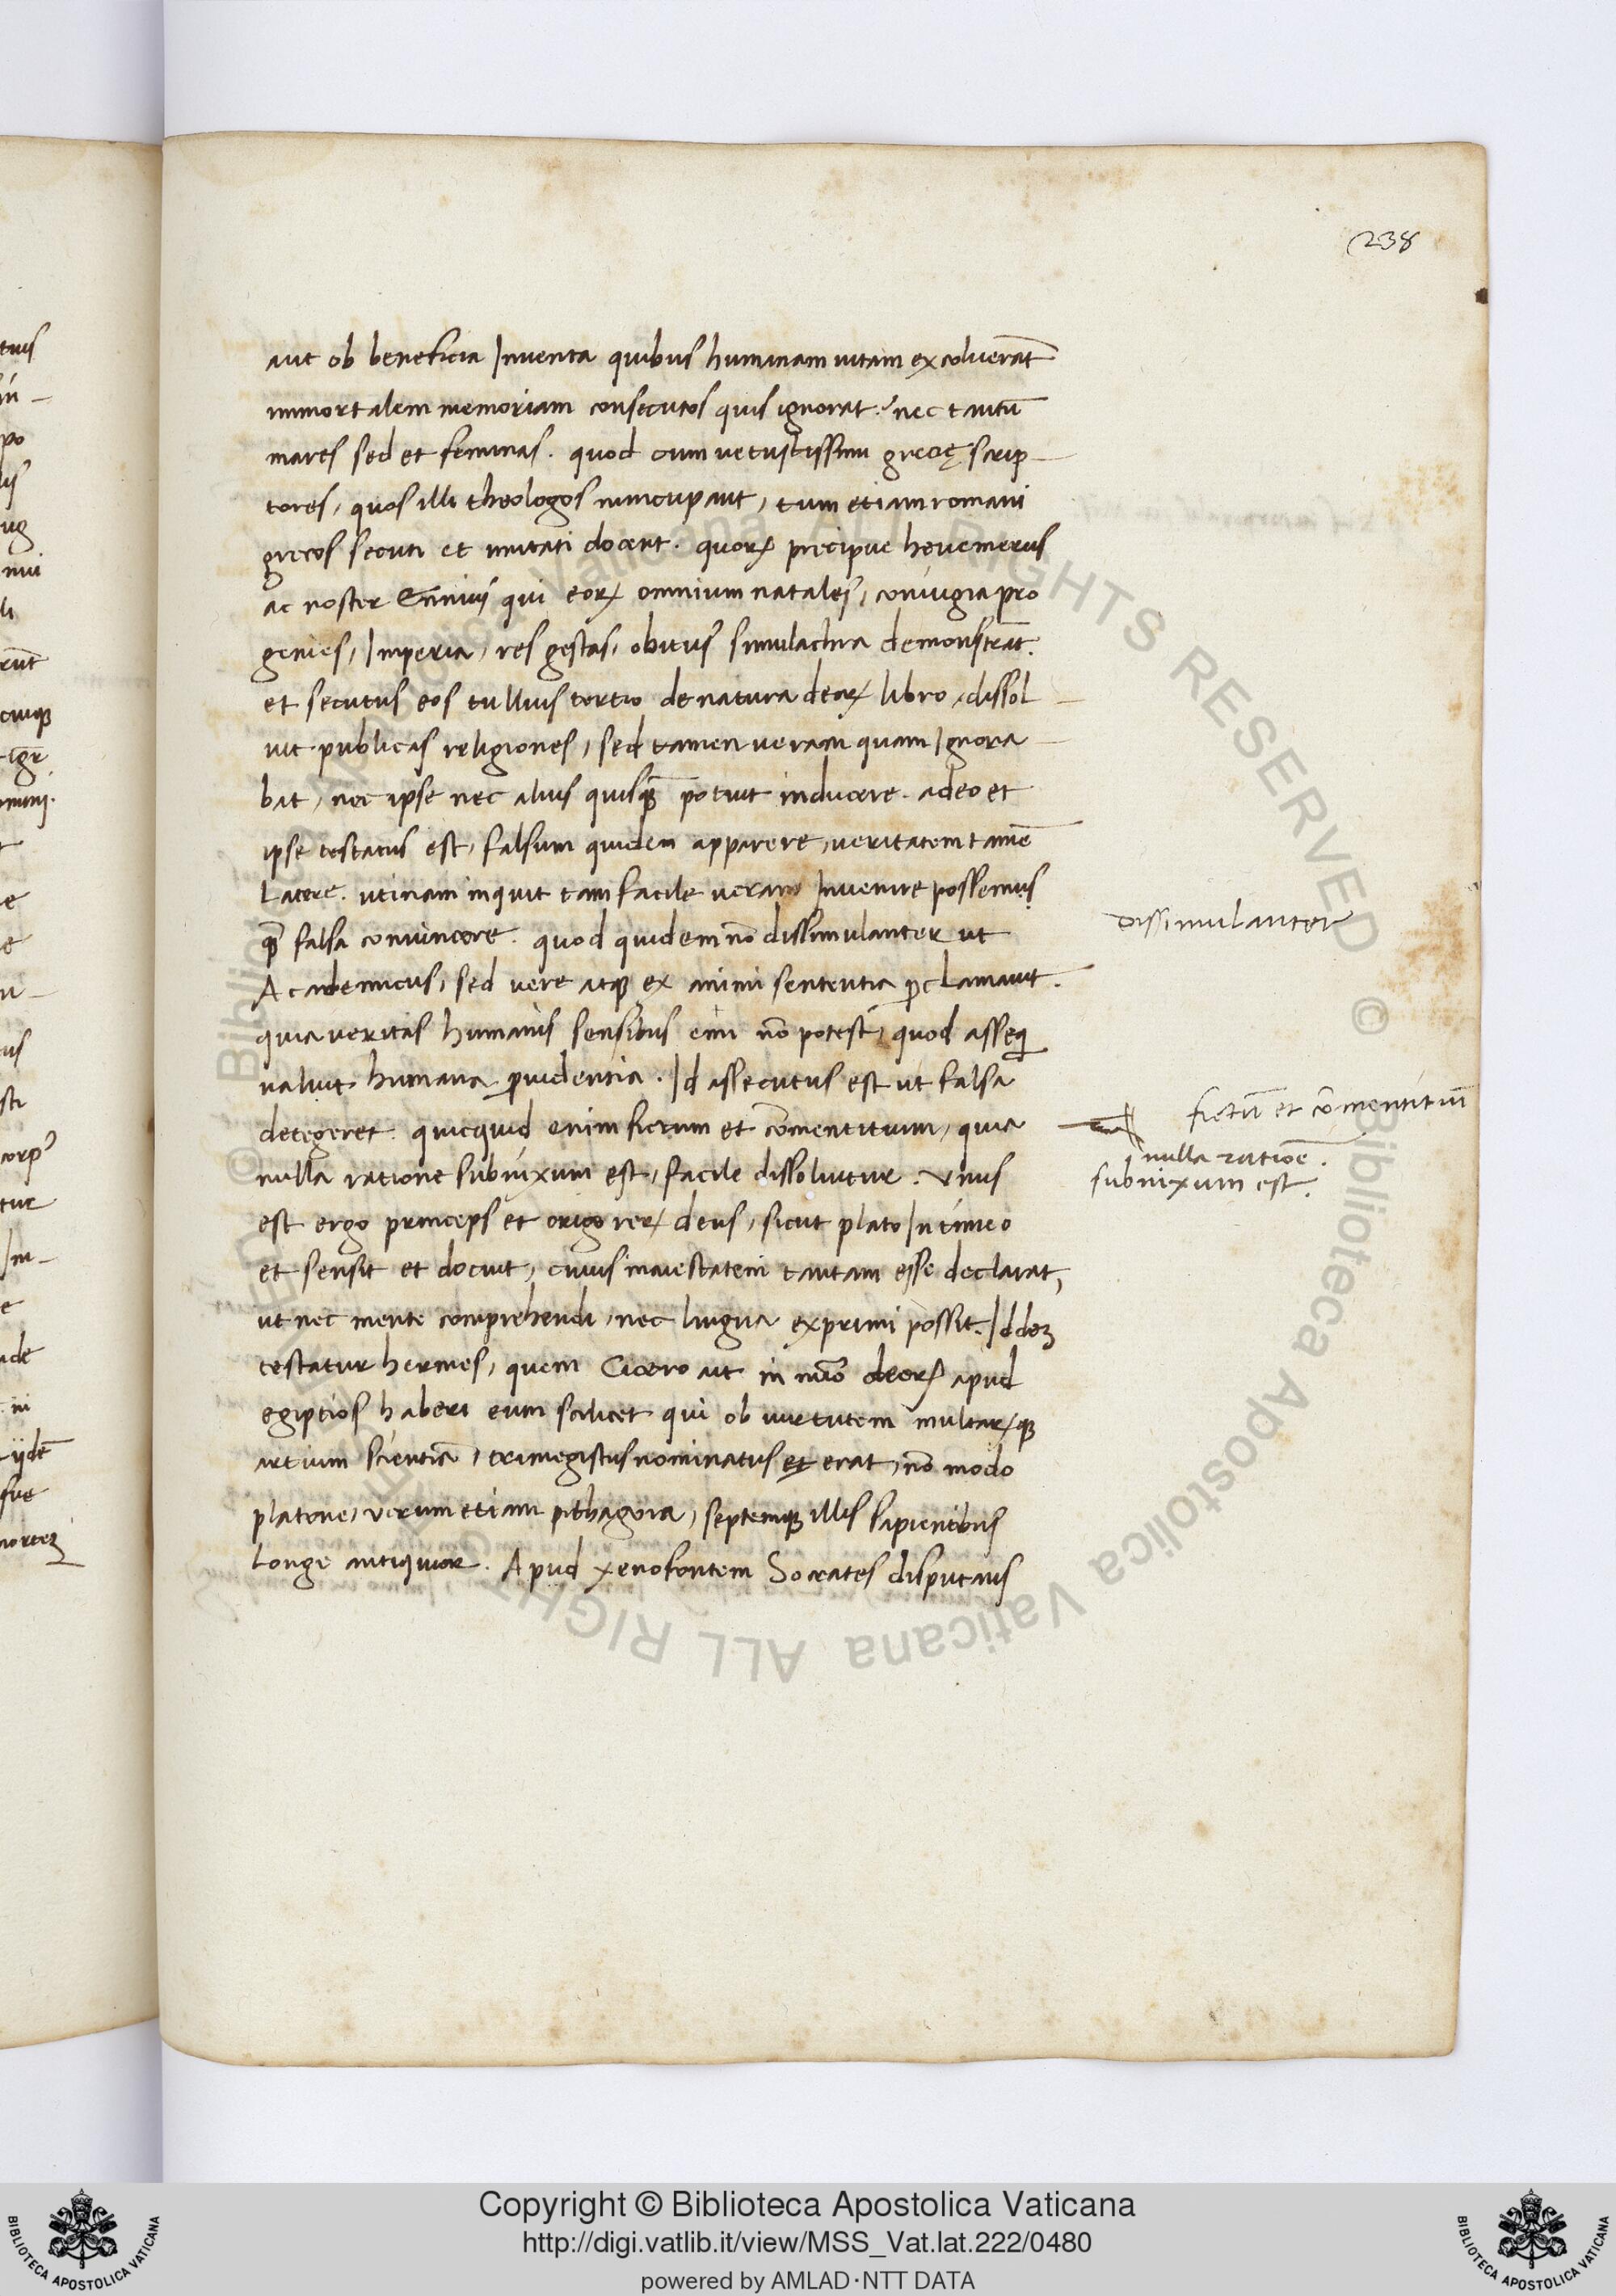 238
aut ob beneficia Inventa quibus humanam vitam excoluerāt
immortalem memoriam consecutos quis ignorat? nec tantū
mares sed et feminas. quod cum vetustissimi grecię scrip–
tores, quos illi theologos nuncupant, tum etiam romani
grecos secuti et imitati docent. quorꝝ precipue heuemerus
ac noster Ennius qui eorꝝ omnium natales, coniugia pro
genies, Imperia, res gestas, obitus simulachra demonstrāt.
et secutus eos tullius tertio de natura deorꝝ libro, dissol–
uit publicas religiones, sed tamen veram quam Ignora–
bat, nec ipse nec alius quisq̄ potuit inducere. adeo et
ipse testatus est, falsum quidem apparere, veritatem tamē
latere. utinam inquit tam facile veram Invenire possemus
q̄ falsa convincere. quod quidem nō dissimulanter ut
Academicus, sed vere atqꝫ ex animi sententia ꝓclamavit.
quia veritas humanis sensibus erui nō potest, quod asseq̄
valuit humana ꝓvidentia. Id assecutus est ut falsa
detegeret. quicquid enim fictum et cōmentitium, quia
nulla ratione subnixum est, facile dissolvitur. Unus
est ergo princeps et origo rerꝝ deus, sicut plato In timeo
et sensit et docuit, cuius maiestatem tantam esse declarat,
ut nec mente comprehendi, nec lingua exprimi possit. Iddeꝫ
testatur hermes, quem Cicero ait in nūo deorꝝ apud
egiptios haberi eum scilicet qui ob virtutem multarꝝqꝫ
artium scientiā, trimegistus nominatus et erat, nō modo
platone, verum etiam pithagora, septemqꝫ illis sapientibus
longe antiquior. Apud xenofontem Socrates disputans
dissimulanter
fictū et cōmentitiū
nulla ratiōe.
subnixum est.
Copyright © Biblioteca Apostolica Vaticana
http://digi.vatlib.it/view/MSS_Vat.lat.222/0480
powered by AMLAD·NTT DATA
BIBLIOTECA APOSTOLICA VATICANA
BIBLIOTECA APOSTOLICA VATICANA
© Biblioteca Apostolica Vaticana ALL RIGHTS RESERVED